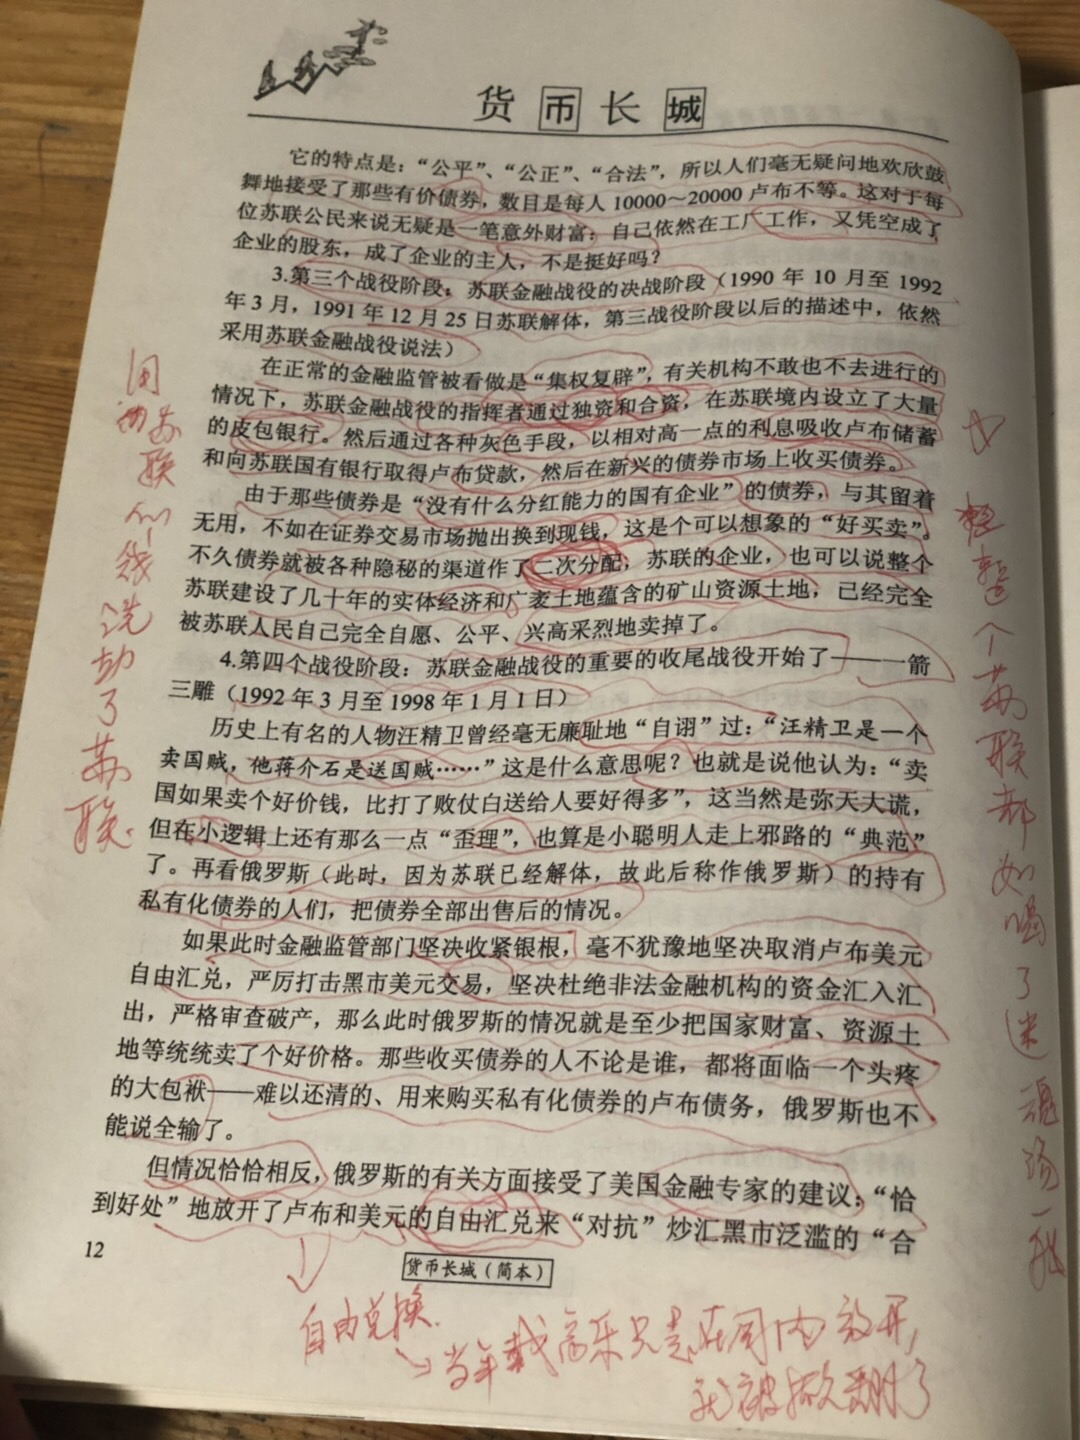 货币长城
它的特点是：“公平”、“公正”、“合法”，所以人们毫无疑问地欢欣鼓
舞地接受了那些有价债券，数目是每人 10000～20000 卢布不等。这对于每
位苏联公民来说无疑是一笔意外财富：自己依然在工厂工作，又凭空成了
企业的股东，成了企业的主人，不是挺好吗？
3.第三个战役阶段：苏联金融战役的决战阶段（1990 年 10 月至 1992
年 3 月，1991 年 12 月 25 日苏联解体，第三战役阶段以后的描述中，依然
采用苏联金融战役说法）
在正常的金融监管被看做是“集权复辟”，有关机构不敢也不去进行的
情况下，苏联金融战役的指挥者通过独资和合资，在苏联境内设立了大量
的皮包银行。然后通过各种灰色手段，以相对高一点的利息吸收卢布储蓄
和向苏联国有银行取得卢布贷款，然后在新兴的债券市场上收买债券。
由于那些债券是“没有什么分红能力的国有企业”的债券，与其留着
无用，不如在证券交易市场抛出换到现钱，这是个可以想象的“好买卖”。
不久债券就被各种隐秘的渠道作了二次分配，苏联的企业，也可以说整个
苏联建设了几十年的实体经济和广袤土地蕴含的矿山资源土地，已经完全
被苏联人民自己完全自愿、公平、兴高采烈地卖掉了。
4.第四个战役阶段：苏联金融战役的重要的收尾战役开始了——一箭
三雕（1992 年 3 月至 1998 年 1 月 1 日）
历史上有名的人物汪精卫曾经毫无廉耻地“自诩”过：“汪精卫是一个
卖国贼，他蒋介石是送国贼……”这是什么意思呢？也就是说他认为：“卖
国如果卖个好价钱，比打了败仗白送给人要好得多”，这当然是弥天大谎，
但在小逻辑上还有那么一点“歪理”，也算是小聪明人走上邪路的“典范”
了。再看俄罗斯（此时，因为苏联已经解体，故此后称作俄罗斯）的持有
私有化债券的人们，把债券全部出售后的情况。
如果此时金融监管部门坚决收紧银根，毫不犹豫地坚决取消卢布美元
自由汇兑，严厉打击黑市美元交易，坚决杜绝非法金融机构的资金汇入汇
出，严格审查破产，那么此时俄罗斯的情况就是至少把国家财富、资源土
地等统统卖了个好价格。那些收买债券的人不论是谁，都将面临一个头疼
的大包袱——难以还清的、用来购买私有化债券的卢布债务，俄罗斯也不
能说全输了。
但情况恰恰相反，俄罗斯的有关方面接受了美国金融专家的建议：“恰
到好处”地放开了卢布和美元的自由汇兑来“对抗”炒汇黑市泛滥的“合
12
货币长城（简本）
用苏联人的钱洗劫了苏联.
整个苏联都如喝了迷魂汤一般
自由兑换.
当年戴高乐只是在国内放开，
就被做翻了